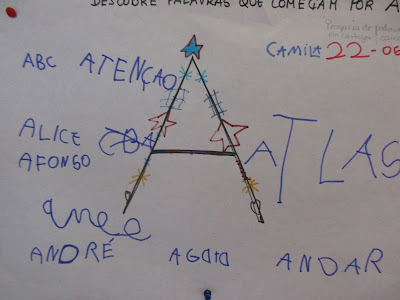 DESCOBRE PALAVRAS QUE COMEÇAM POR A
CAMILA 22-06
ABC ATENÇAO
A
ALICE
ATLAS
AFONSO
ANDRÉ
ANDAR